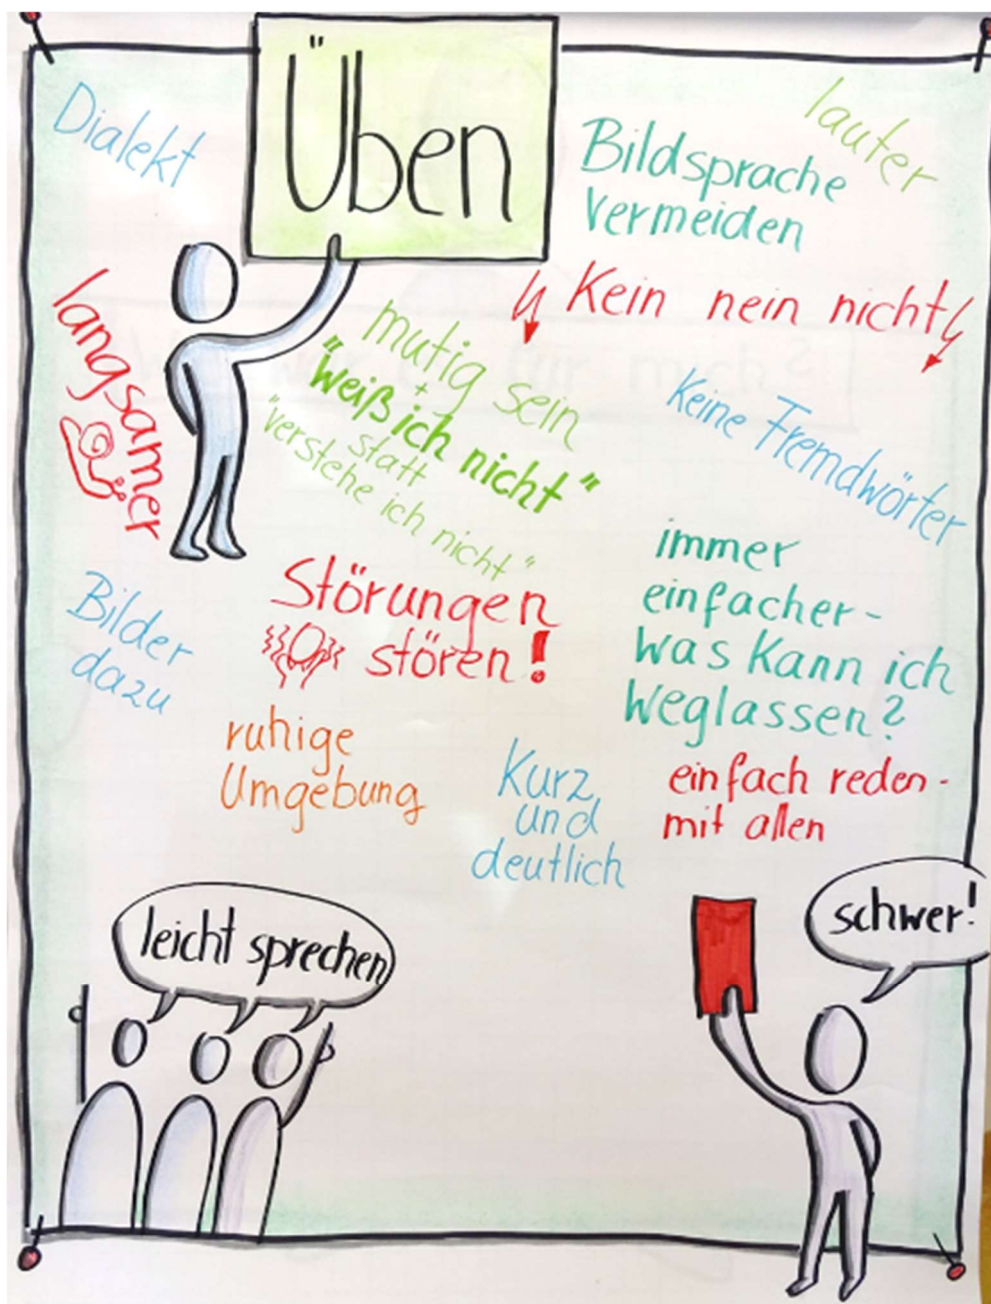 Üben
Dialekt
lauter
Bildsprache
vermeiden
Kein nein nicht
langsamer
mutig sein
+
"weiß ich nicht"
statt
"verstehe ich nicht"
Keine Fremdwörter
Störungen
stören!
immer
einfacher-
was kann ich
weglassen?
Bilder
dazu
ruhige
Umgebung
Kurz
und
deutlich
einfach reden-
mit allen
leicht sprechen
schwer!